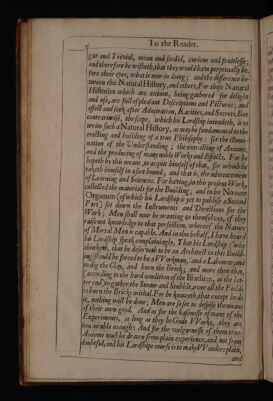 To the Reader.
gar and Trivial, mean and sordid, curious and fruitlesse;
and therefore he wisheth, that they would have perpetually be-
fore their eyes, what is now in doing; and the difference be-
tween this Natural History, and others. For those Natural
Histories which are extant, being gathered for delight
and use, are full of pleasant Descriptions and Pictures; and
affect and seek after Admiration, Rarities, and Secrets. But
contrariwise, the scope, which his Lordship intendeth, is to
write such a Natural History, as may be fundamental to the
erecting and building of a true Philosophy: for the illumi-
nation of the Understanding; the extracting of Axioms,
and the producing of many noble Works and Effects. For he
hopeth by this means, to acquit himself of that, for which he
taketh himself in a sort bound; and that is, the advancement
of Learning and Sciences. For having, in this present Work,
collected the materials for the Building; and in his Novum
Organum (of which his Lordship is yet to publish a Second
Part) set down the Instruments and Directions for the
Work; Men shall now be wanting to themselves, if they
raise not knowledge to that perfection, whereof the Nature
of Mortal Men is capable. And in this behalf, I have heard
his Lordship speak complainingly, That his Lordship (who
thinketh, that he deserveth to be an Architect in this build-
ing) should be forced to be a VVorkman, and a Labourer; and
to dig the Clay, and burn the Brick; and more then that,
(according to the hard condition of the Israelites, at the lat-
ter end) to gather the Straw and Stubble, over all the Fields,
to burn the Bricks withal. For he knoweth, that except he do
it, nothing will be done; Men are so set to despise the means
of their own good. And as for the basenesse of many of the
Experiments, as long as they be Gods VVorks, they are
honourable enough: And for the vulgarnesse of them; true
Axioms must be drawn from plain experience, and not from
doubtful; and his Lordships course is to make VVonders plain,
and